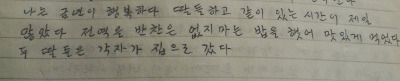 나는 금년이 행복하다 딸들하고 같이 있는 시간이 제일
많았다 전역을 반찬은 없지마는 밥을 했어 맛있게 먹었다
두 딸들은 각자가 집으로 갔다